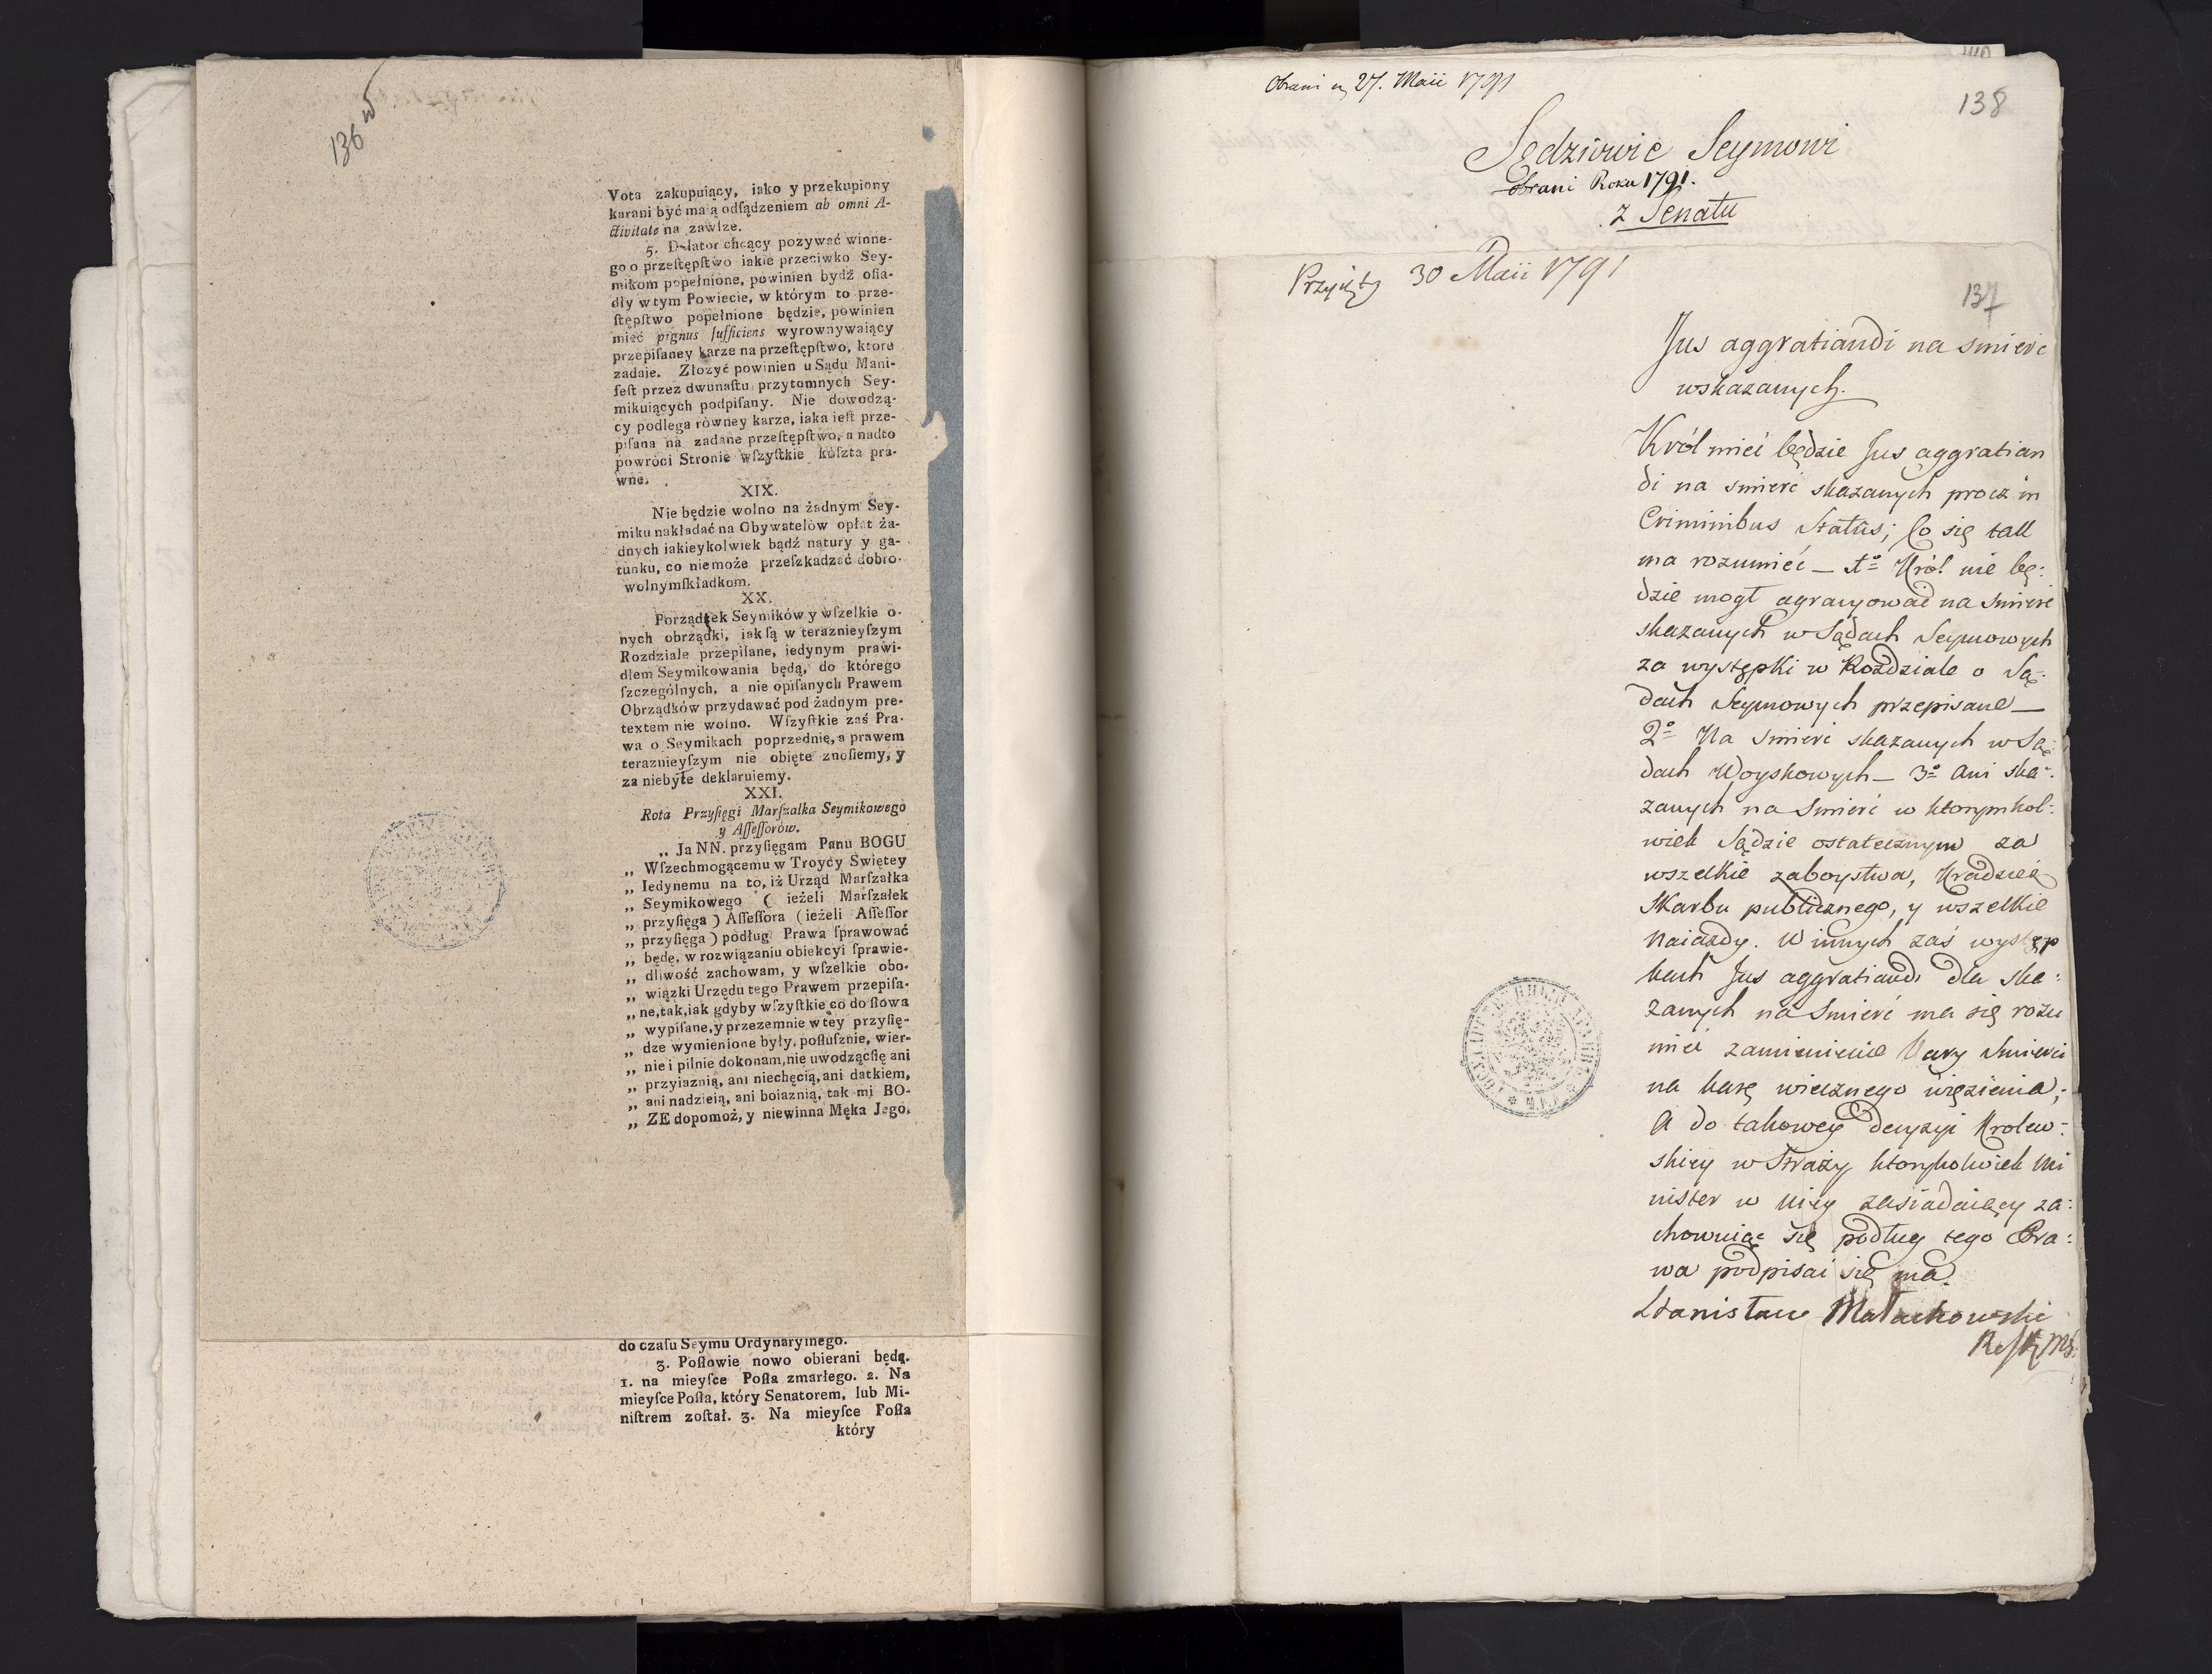 136 w
Vota zakupuiący, iako y przekupiony
karani być maią odſądzeniem ab omni A-
ctivitate na zawſze.
5. Delator chcący pozywać winne-
go o przeſtępſtwo iakie przeciwko Sey-
mikom popełnione, powinien bydź oſia-
dły w tym Powiecie, w którym to prze-
ſtępſtwo popełnione będzie, powinien
mieć pignus ſufficiens wyrownywaiący
przepiſaney karze na przeſtępſtwo, ktore
zadaie. Złożyć powinien u Sądu Mani-
feſt przez dwunaſtu przytomnych Sey-
mikuiących podpiſany. Nie dowodzą-
cy podlega równey karze, iaka ieſt prze-
piſana na zadane przeſtępſtwo, a nadto
powroci Stronie wſzyſtkie koſzta pra-
wne.
XIX.
Nie będzie wolno na żadnym Sey-
miku nakładać na Obywatelów opłat ża-
dnych iakieykolwiek bądź natury y ga-
tunku, co niemoże przeſzkadzać dobro-
wolnym ſkładkom.
XX.
Porządek Seymików y wſzelkie o-
nych obrządki, iak ſą w teraznieyſzym
Rozdziale przepiſane, iedynym prawi-
dłem Seymikowania będą, do którego
ſzczególnych, a nie opiſanych Prawem
Obrządków przydawać pod żadnym pre-
textem nie wolno. Wſzyſtkie zaś Pra-
wa o Seymikach poprzednie, a prawem
teraznieyſzym nie obięte znoſiemy, y
za niebyłe deklaruiemy.
XXI.
Rota Przyſięgi Marſzałka Seymikowego
y Aſſeſſorów.
„ Ja NN. przyſięgam Panu BOGU
„ Wſzechmogącemu w Troycy Swiętey
„ Iedynemu na to, iż Urząd Marſzałka
„ Seymikowego ( ieżeli Marſzałek
„ przyſięga ) Aſſeſſora ( ieżeli Aſſeſſor
„ przyſięga ) podług Prawa ſprawować
„ będę, w rozwiązaniu obiekcyi ſprawie-
„ dliwość zachowam, y wſzelkie obo-
„ wiązki Urzędu tego Prawem przepiſa-
„ ne, tak, iak gdyby wſzyſtkie co do ſłowa
„ wypiſane, y przezemnie w tey przyſię-
„ dze wymienione były, poſłuſznie, wier-
„ nie i pilnie dokonam, nie uwodząc ſię ani
„ przyiaznią, ani niechęcią, ani datkiem,
„ ani nadzieią, ani boiaznią, tak mi BO-
„ ZE dopomoż, y niewinna Męka Jego.
do czaſu Seymu Ordynaryinego.
3. Poſłowie nowo obierani będą.
1. na mieyſce Poſła zmarłego. 2. Na
mieyſce Poſła, który Senatorem, lub Mi-
niſtrem zoſtał. 3. Na mieyſce Poſła
który
Obrani 27. Maii 1791
138
Sędziowie Seymowi
obrani Roku 1791.
z Senatu
Przyięty 30 Maii 1791
137
Jus aggratiandi na smierć
wskazanych.
Król mieć będzie Jus aggratian
di na smierć skazanych procz in
Criminibus Status; Co się tak
ma rozumieć – 1º Król nie bę:
dzie mogł agracyować na smierć
skazanych w Sądach Seymowych
za występki w Rozdziale o Są:
dach Seymowych przepisane –
2º Na smierć skazanych w Są:
dach Woyskowych – 3º Ani ska:
zanych na smierć w ktorymkol:
wiek Sądzie ostatecznym za
wszelkie zaboystwa, Kradzież
Skarbu publicznego, y wszelkie
Naiazdy. W innych zaś występ
kach Jus aggratiandi dla ska:
zanych na smierć ma się rozu
mieć zamienienie Kary smierci
na karę wiecznego więzienia;
A do takowey decyzyi Krolew:
skiey w Straży ktorykolwiek Mi
nister w niey zasiadaiący za:
chowuiąc się podług tego Pra:
wa podpisać się ma.
Stanisław Małachowski